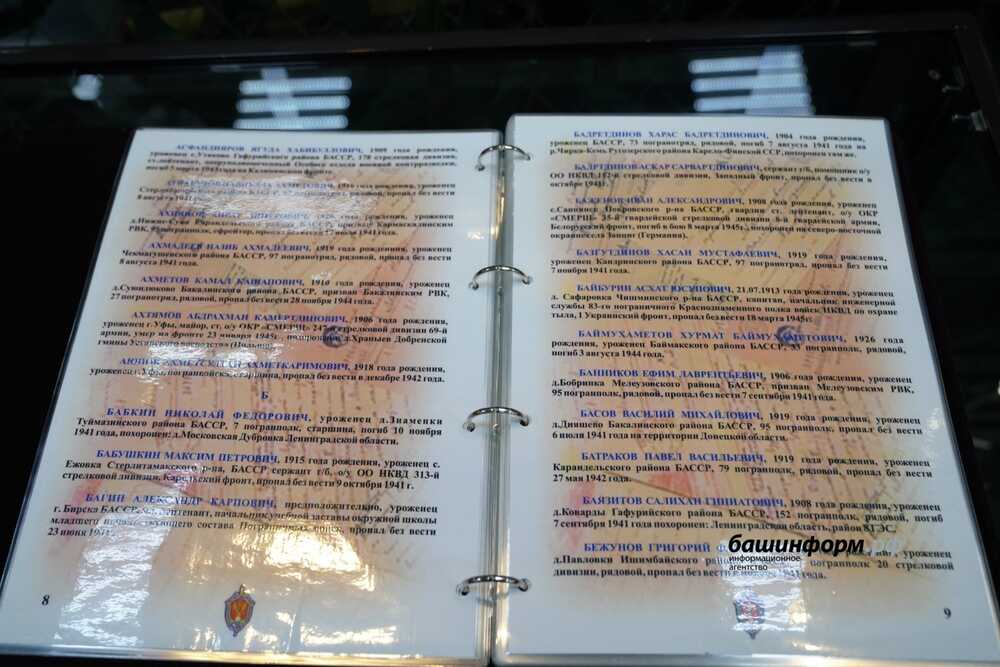 АСФАНДИЯРОВ ЯГУДА ХАБИБУЛЛОВИЧ, 1909 года рождения,
уроженец с.Утяково Гафурийского района БАССР, 178 стрелковая дивизия,
ст.лейтенант, Особого отдела военной контрразведки,
погиб 5 марта 1943 года на Калининском фронте.
АХМЕТОВИЧ, 1916 года рождения, уроженец
Стерлитамакского района БАССР, рядовой, пропал без вести
8 августа 1941г.
1926 года рождения, уроженец
БАССР, призван Кармаскалинским
РВК, ефрейтор, 17 июля 1941г.
АХМАДЕЕВ НАЗИБ АХМАДЕЕВИЧ, 1919 года рождения, уроженец
Чекмагушевского района БАССР, 97 погранотряд, рядовой, пропал без вести
8 августа 1941 года.
АХМЕТОВ КАМАЛ КАШАПОВИЧ, 1910 года рождения, уроженец
Бакалинского района БАССР, призван Бакалинским РВК,
27 погранотряд, рядовой, пропал без вести 28 ноября 1944 года.
АХТЯМОВ АБДРАХМАН КАМЕРТДИНОВИЧ, 1906 года рождения,
уроженец г.Уфы, майор, ст. о/у ОКР «СМЕРШ» 247 стрелковой дивизии 69-й
армии, умер на фронте 23 января 1945г., похоронен д.Храныев Добренской
гмины
АХМЕТКАРИМОВИЧ, 1918 года рождения,
уроженец г.Уфы, погранвойска, старшина, пропал без вести в декабре 1942 года.
Б
БАБКИН НИКОЛАЙ ФЕДОРОВИЧ, уроженец д.Знаменки
Туймазинского района БАССР, 7 погранполк, старшина, погиб 10 ноября
1941 года, похоронен: д.Московская Дубровка Ленинградской области.
БАБУШКИН МАКСИМ ПЕТРОВИЧ, 1915 года рождения, уроженец с.
Ежовка Стерлитамакского р-на, БАССР, сержант г/б, о/у ОО НКВД 313-й
стрелковой дивизии, Карельский фронт, пропал без вести 9 октября 1941 г.
БАГИН АЛЕКСАНДР КАРПОВИЧ, предположительно, уроженец
г. Бирска БАССР, лейтенант, начальник учебной заставы окружной школы
младшего начальствующего состава Пограничных войск, пропал без вести
23 июня 1941г.
8
БАДРЕТДИНОВ ХАРАС БАДРЕТДИНОВИЧ, 1904 года рождения,
уроженец БАССР, 73 погранотряд, рядовой, погиб 7 августа 1941 года на
р.Чирка-Кемь Ругозерского района Карело-Финской ССР, похоронен там же.
БАДРЕТДИНОВ АСКАР САРВАРТДИНОВИЧ, сержант г/б, помощник о/у
ОО НКВД 112-й стрелковой дивизии, Западный фронт, пропал без вести в
октябре 1941г.
БАЖЕНОВ ИВАН АЛЕКСАНДРОВИЧ, 1908 года рождения, уроженец
Покровского р-на БАССР, гвардии ст. лейтенант, о/у ОКР
«СМЕРШ» 35-й гвардейской стрелковой дивизии 8-й гвардейской армии,
Белорусский фронт, погиб в бою 8 марта 1945г., похоронен на северо-восточной
окраине села (Германия).
БАЗГУТДИНОВ ХАСАН МУСТАФАЕВИЧ, 1919 года рождения,
уроженец Кандринского района БАССР, 97 погранотряд, пропал без вести
7 ноября 1941 года.
БАЙБУРИН АСХАТ ЮСУПОВИЧ, 21.07.1913 года рождения, уроженец
д. Сафаровка Чишминского р-на БАССР, капитан, начальник инженерной
службы 83-го пограничного Краснознаменного полка войск НКВД по охране
тыла, 1 Украинский фронт, пропал без вести 18 марта 1945г.
БАЙМУХАМЕТОВ ХУРМАТ БАЙМУХАМЕТОВИЧ, 1926 года
рождения, уроженец Баймакского района БАССР, 33 погранполк, рядовой,
погиб 3 августа 1944 года.
БАННИКОВ ЕФИМ ЛАВРЕНТЬЕВИЧ, 1906 года рождения, уроженец
д.Бобринка Мелеузовского района БАССР, призван Мелеузовским РВК,
95 погранполк, рядовой, пропал без вести 7 сентября 1941 года.
БАСОВ ВАСИЛИЙ МИХАЙЛОВИЧ, 1919 года рождения, уроженец
д.Диашево Бакалинского района БАССР, 95 погранполк, пропал без вести
6 июля 1941 года на территории Донецкой области.
БАТРАКОВ ПАВЕЛ ВАСИЛЬЕВИЧ, 1919 года рождения, уроженец
Карандельского района БАССР, 79 погранполк, рядовой, пропал без вести
27 мая 1942 года.
БАЯЗИТОВ САЛИХАН ГИНИАТОВИЧ, 1908 года рождения, уроженец
д.Коварды Гафурийского района БАССР, 152 погранполк, рядовой, погиб
7 сентября 1941 года похоронен: Ленинградская область, район 8ГЭС.
БЕЖУНОВ ГРИГОРИЙ уроженец
д.Павловки Ишимбайского района погранполк 20 стрелковой
дивизии, рядовой, пропал без вести в 1941 года.
9
башинформ
информационное
агентство